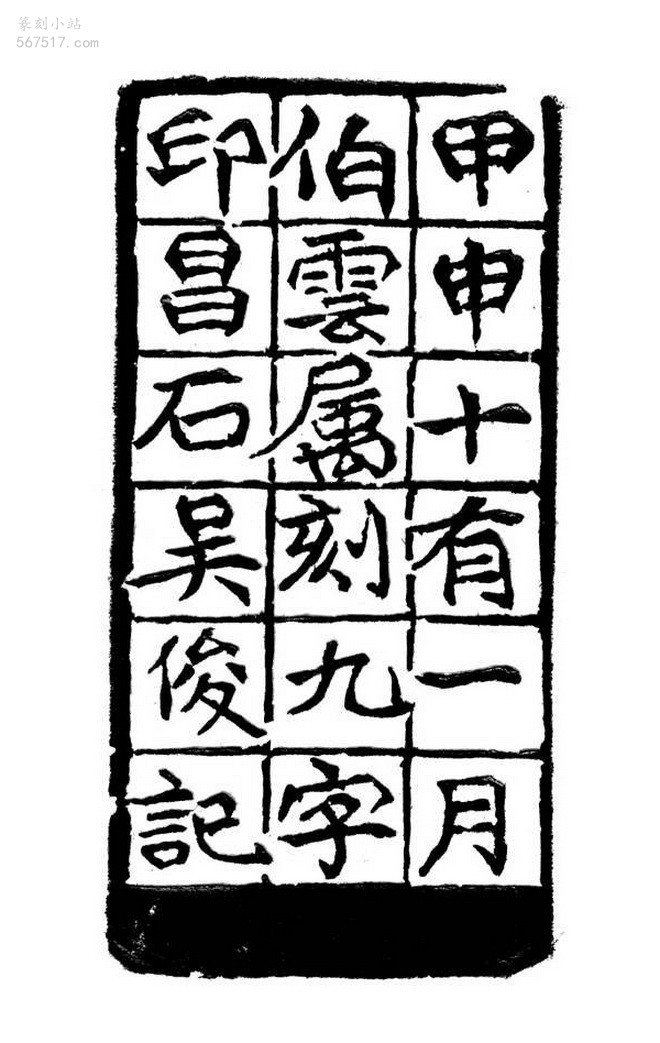 篆刻小站
567517.com
甲申十有一月
伯雲属刻九字
印昌石吴俊記